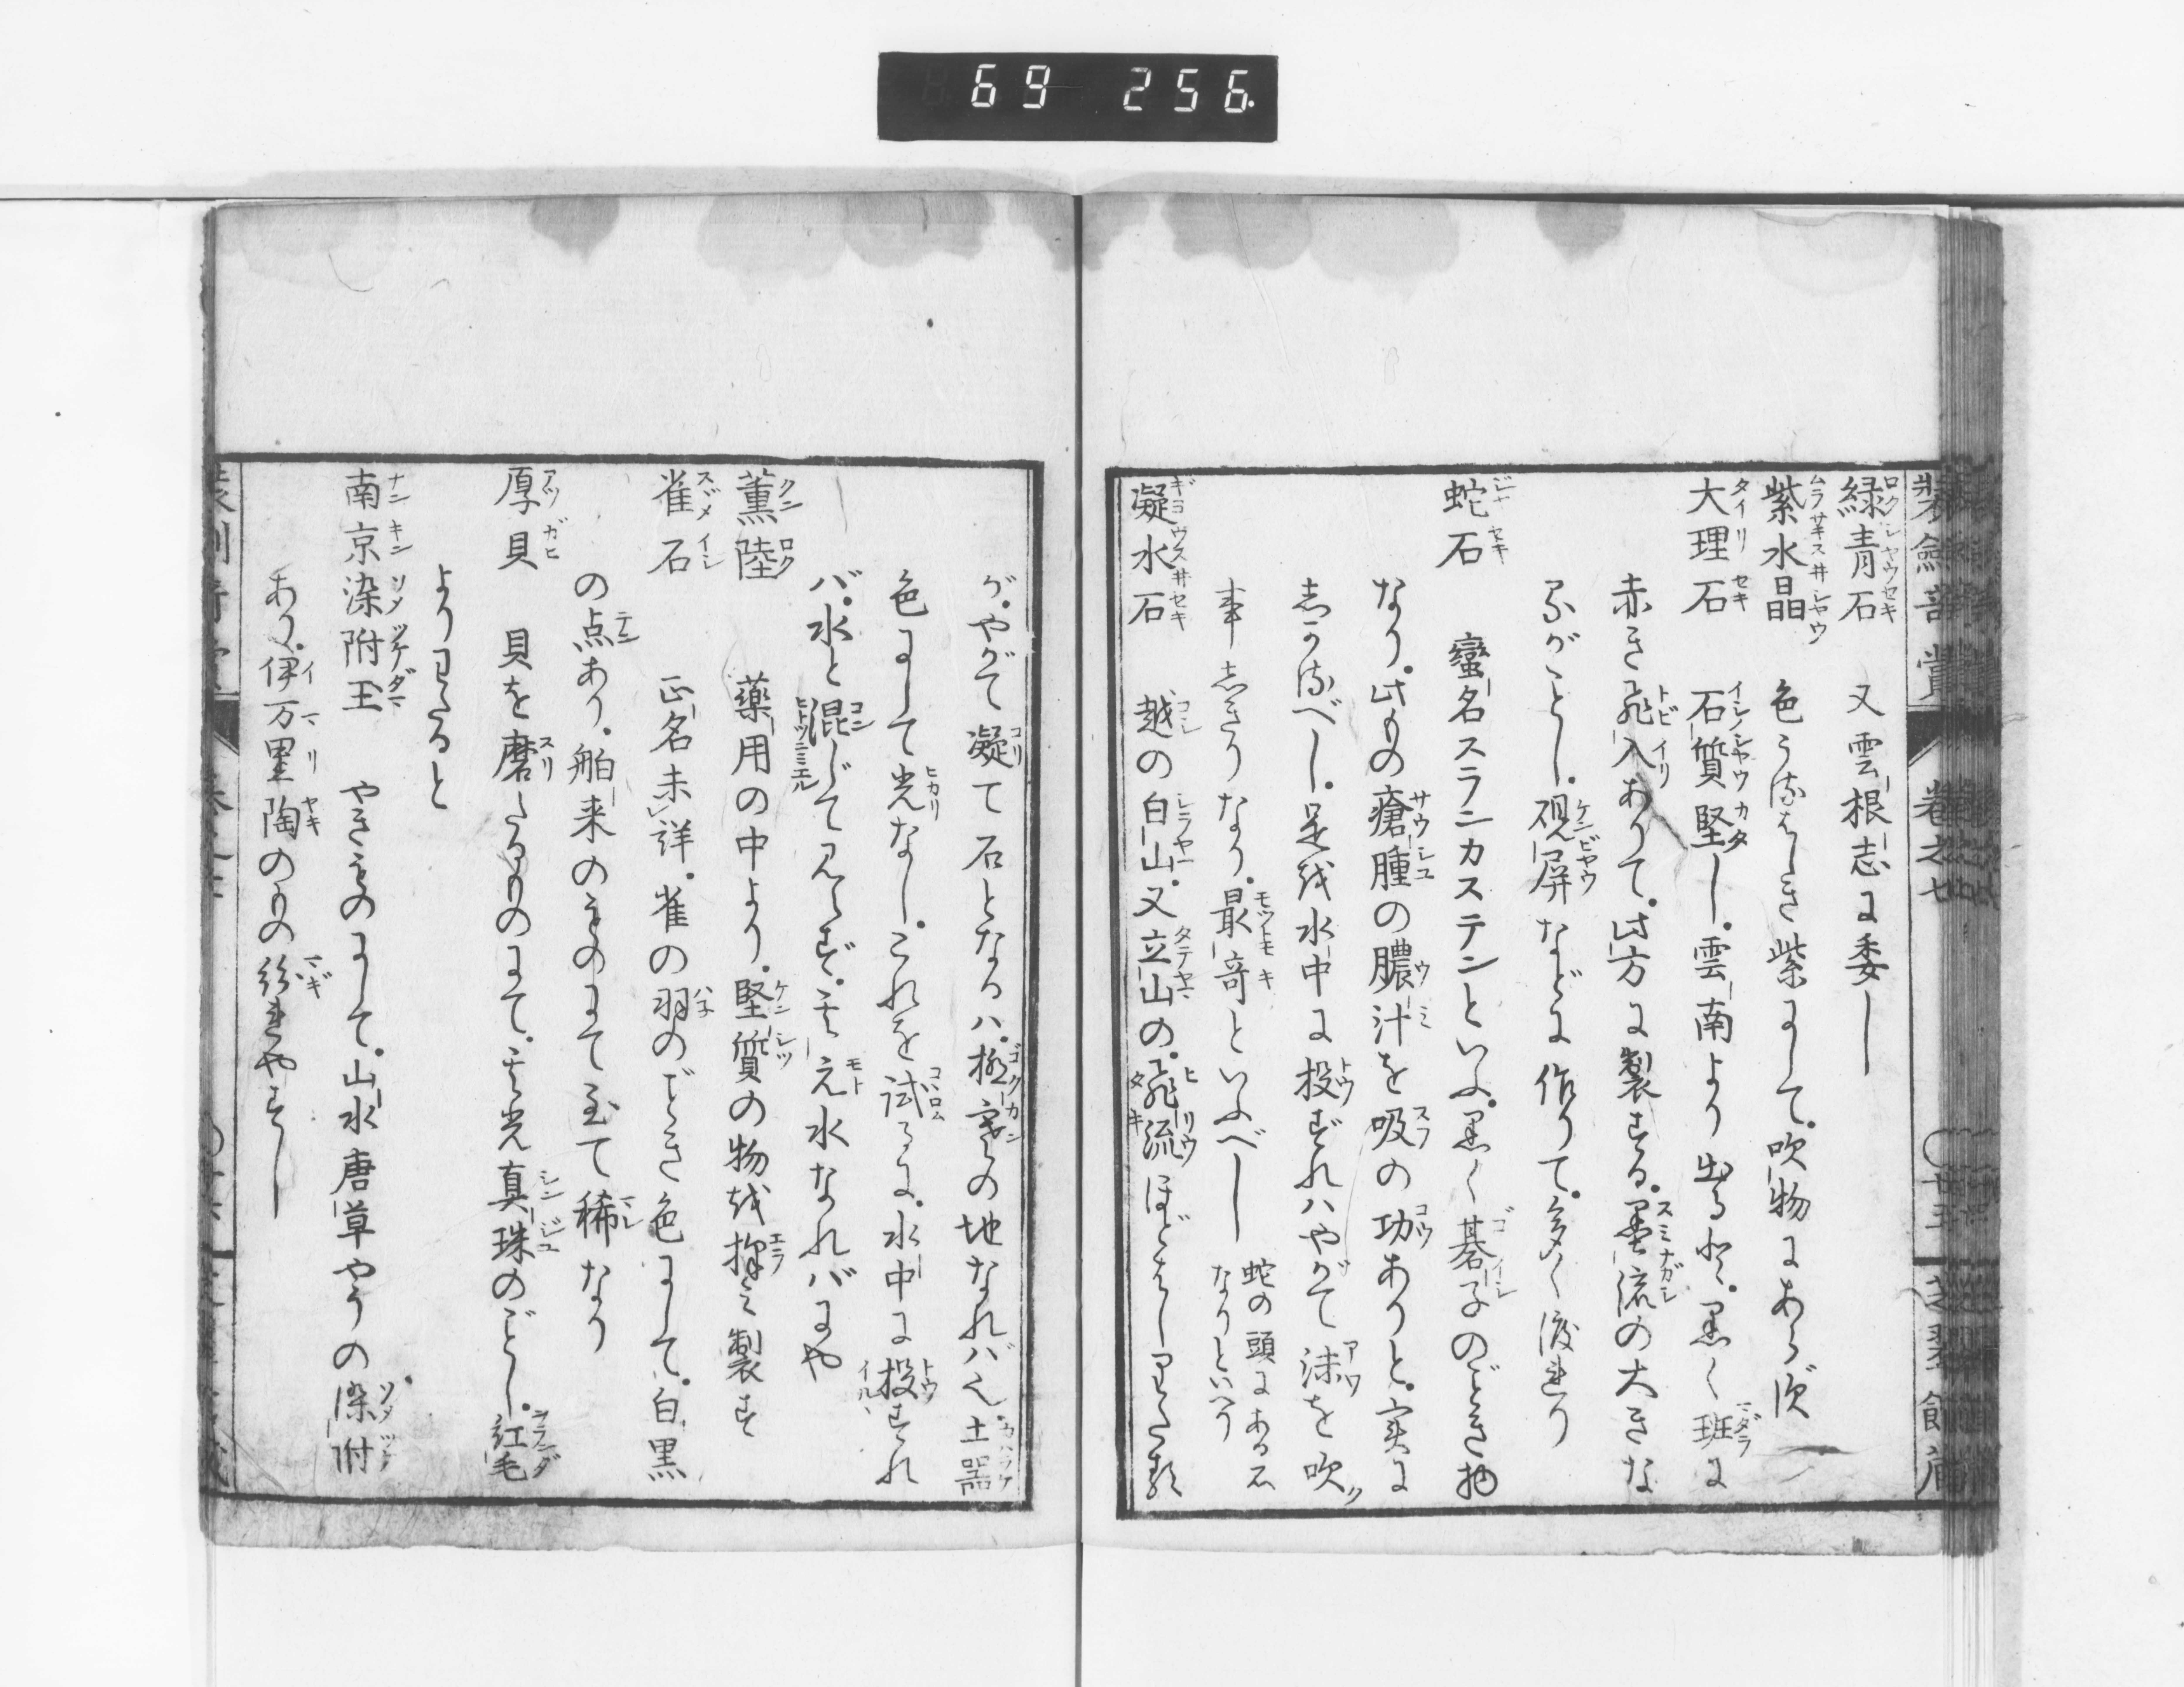 69 256
装劔奇賞 卷之七 ○廿五 芝翠館藏
緑青石 又雲根志に委し
紫水晶 色うるはしき紫にして。吹物にあらず
大理石 石質堅し。雲南より出るは。黒く斑に
赤き飛入ありて。此方に製する。墨流の大きな
るがことし。硯屏などに作りて。多く渡れり
蛇石 蠻名スランカステンといふ。黒く碁子のごとき物
なり。此もの瘡腫の膿汁を吸の功ありと。実に
志かるべし。是を水中に投ずれハやがて沫を吹ク
事志きりなり。最竒といふべし 蛇の頭にある石
なりといへり
凝水石 越の白山。又立山の。飛流ほどばしりたる
が。やがて凝て石となるハ。極寒の地なれバ也。土器
色にして光なし。これを試るに。水中に投ずれ
バ。水と混じて見へず。其元水なれバにや
薫陸 薬用の中より。堅質の物を擇ミ製す
雀石 正名未詳。雀の羽のごとき色にして。白黒
の点あり。舶来のものにて至て稀なり
厚貝 貝を磨たるものにて。其光真珠のごとし。紅毛
よりわたると
南京染附玉 やきものにして。山水唐草やうの染附
あり。伊万里陶のもの紛れやすし